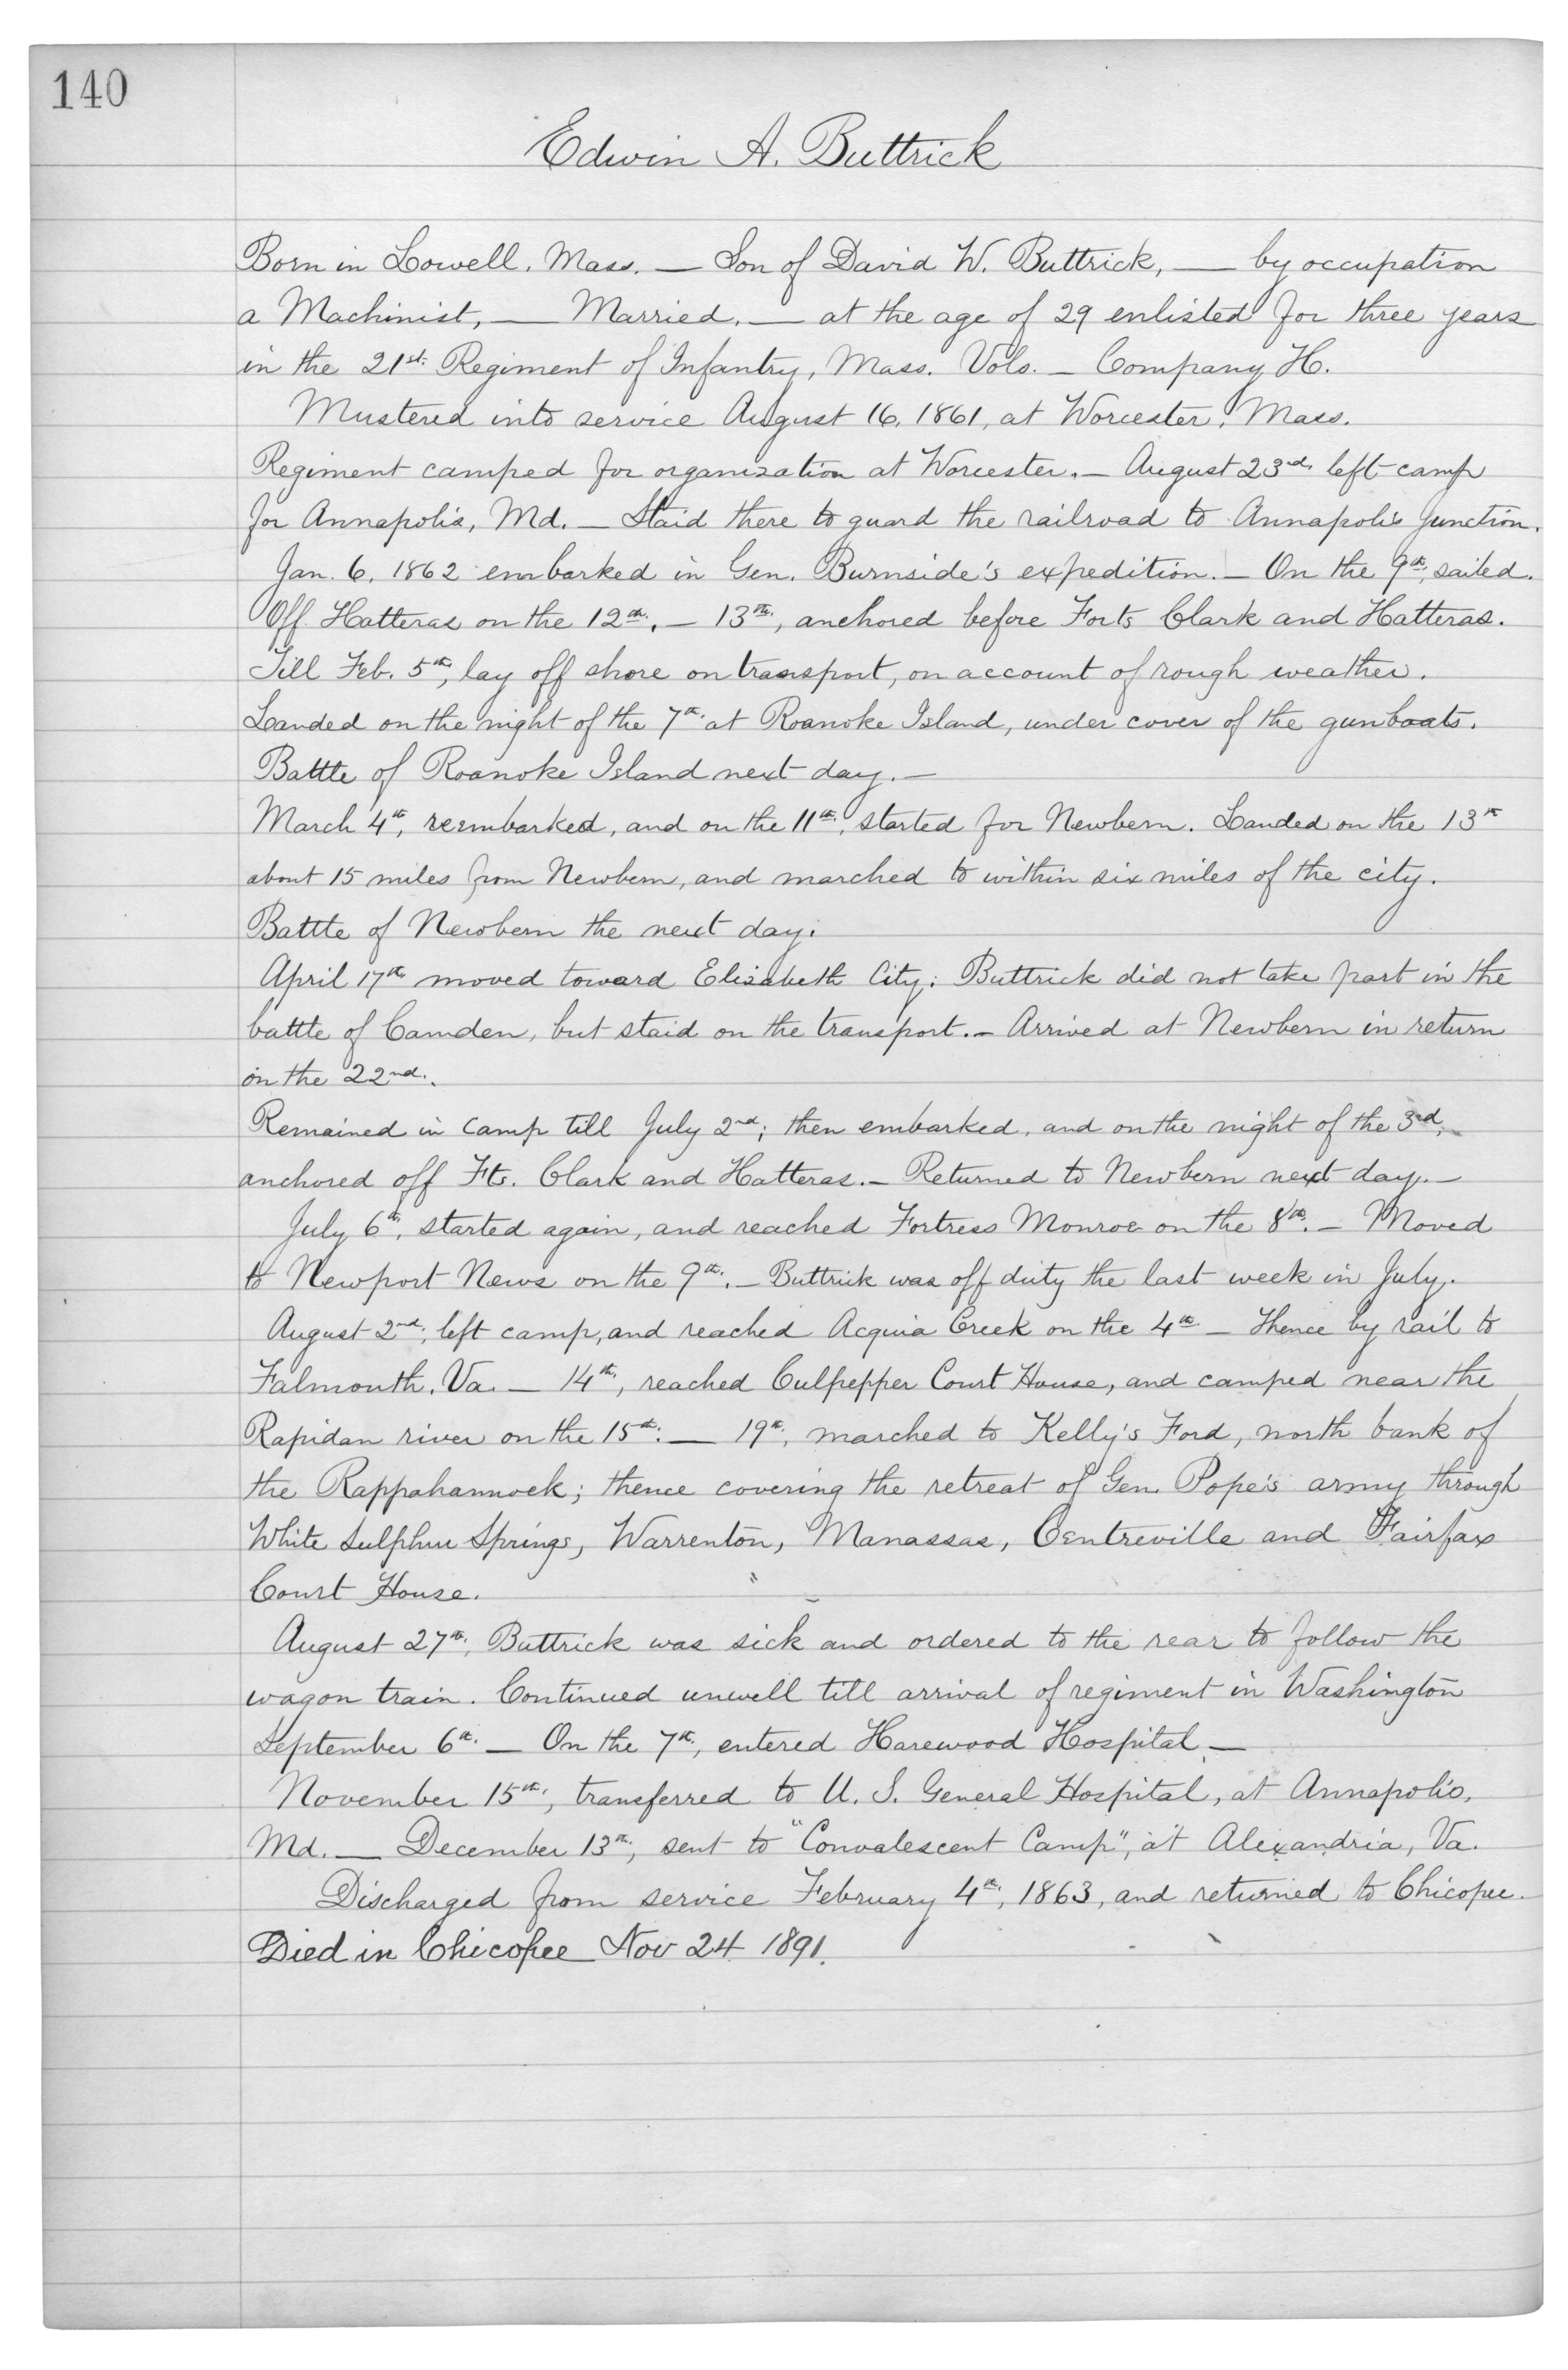 140
Edwin A. Buttrick
Born in Lowell, Mass. — Son of David W. Buttrick, — by occupation
a Machinist, — Married, — at the age of 29 enlisted for three years
in the 21st. Regiment of Infantry, Mass. Vols. — Company H.
Mustered into service August 16, 1861, at Worcester, Mass.
Regiment camped for organization at Worcester. — August 23rd. left camp
for Annapolis, Md. — Staid there to guard the railroad to Annapolis Junction.
Jan. 6, 1862 embarked in Gen. Burnside's expedition. — On the 9th, sailed.
Off Hatteras on the 12th. — 13th, anchored before Forts Clark and Hatteras.
Till Feb. 5th, lay off shore on transport, on account of rough weather.
Landed on the night of the 7th. at Roanoke Island, under cover of the gunboats.
Battle of Roanoke Island next day. —
March 4th, reembarked, and on the 11th, started for Newbern. Landed on the 13th
about 15 miles from Newbern, and marched to within six miles of the city.
Battle of Newbern the next day.
April 17th moved toward Elizabeth City; Buttrick did not take part in the
battle of Camden, but staid on the transport. — Arrived at Newbern in return
on the 22nd.
Remained in camp till July 2nd; then embarked, and on the night of the 3rd,
anchored off Fts. Clark and Hatteras. — Returned to Newbern next day. —
July 6th, started again, and reached Fortress Monroe on the 8th. — Moved
to Newport News on the 9th. — Buttrick was off duty the last week in July.
August 2nd, left camp, and reached Acquia Creek on the 4th — Thence by rail to
Falmouth, Va. — 14th, reached Culpepper Court House, and camped near the
Rapidan river on the 15th. — 19th, marched to Kelly's Ford, north bank of
the Rappahannock; thence covering the retreat of Gen. Pope's army through
White Sulphur Springs, Warrenton, Manassas, Centreville and Fairfax
Court House.
August 27th, Buttrick was sick and ordered to the rear to follow the
wagon train. Continued unwell till arrival of regiment in Washington
September 6th. — On the 7th, entered Harewood Hospital. —
November 15th, transferred to U. S. General Hospital, at Annapolis,
Md. — December 13th, sent to "Convalescent Camp", at Alexandria, Va.
Discharged from service February 4th, 1863, and returned to Chicopee.
Died in Chicopee Nov 24 1891.